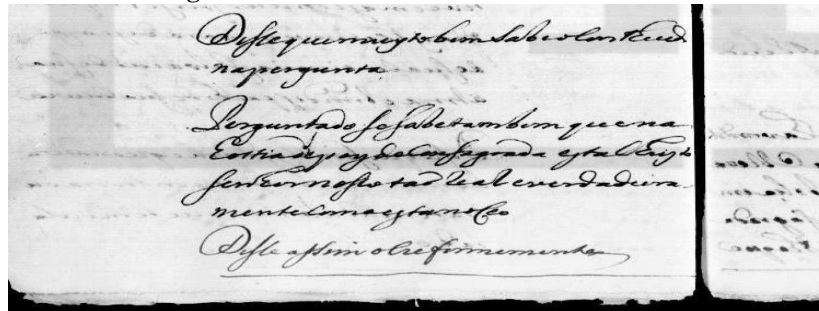 Disse que muyto bem sabe o conteud
na pergunta
Perguntado se sabe tambem que na
Hostia depoys de Consagrada esta Christo
senhor nosso tao Real e verdadeira-
mente como esta no Ceo
Disse assim o cre firmemente